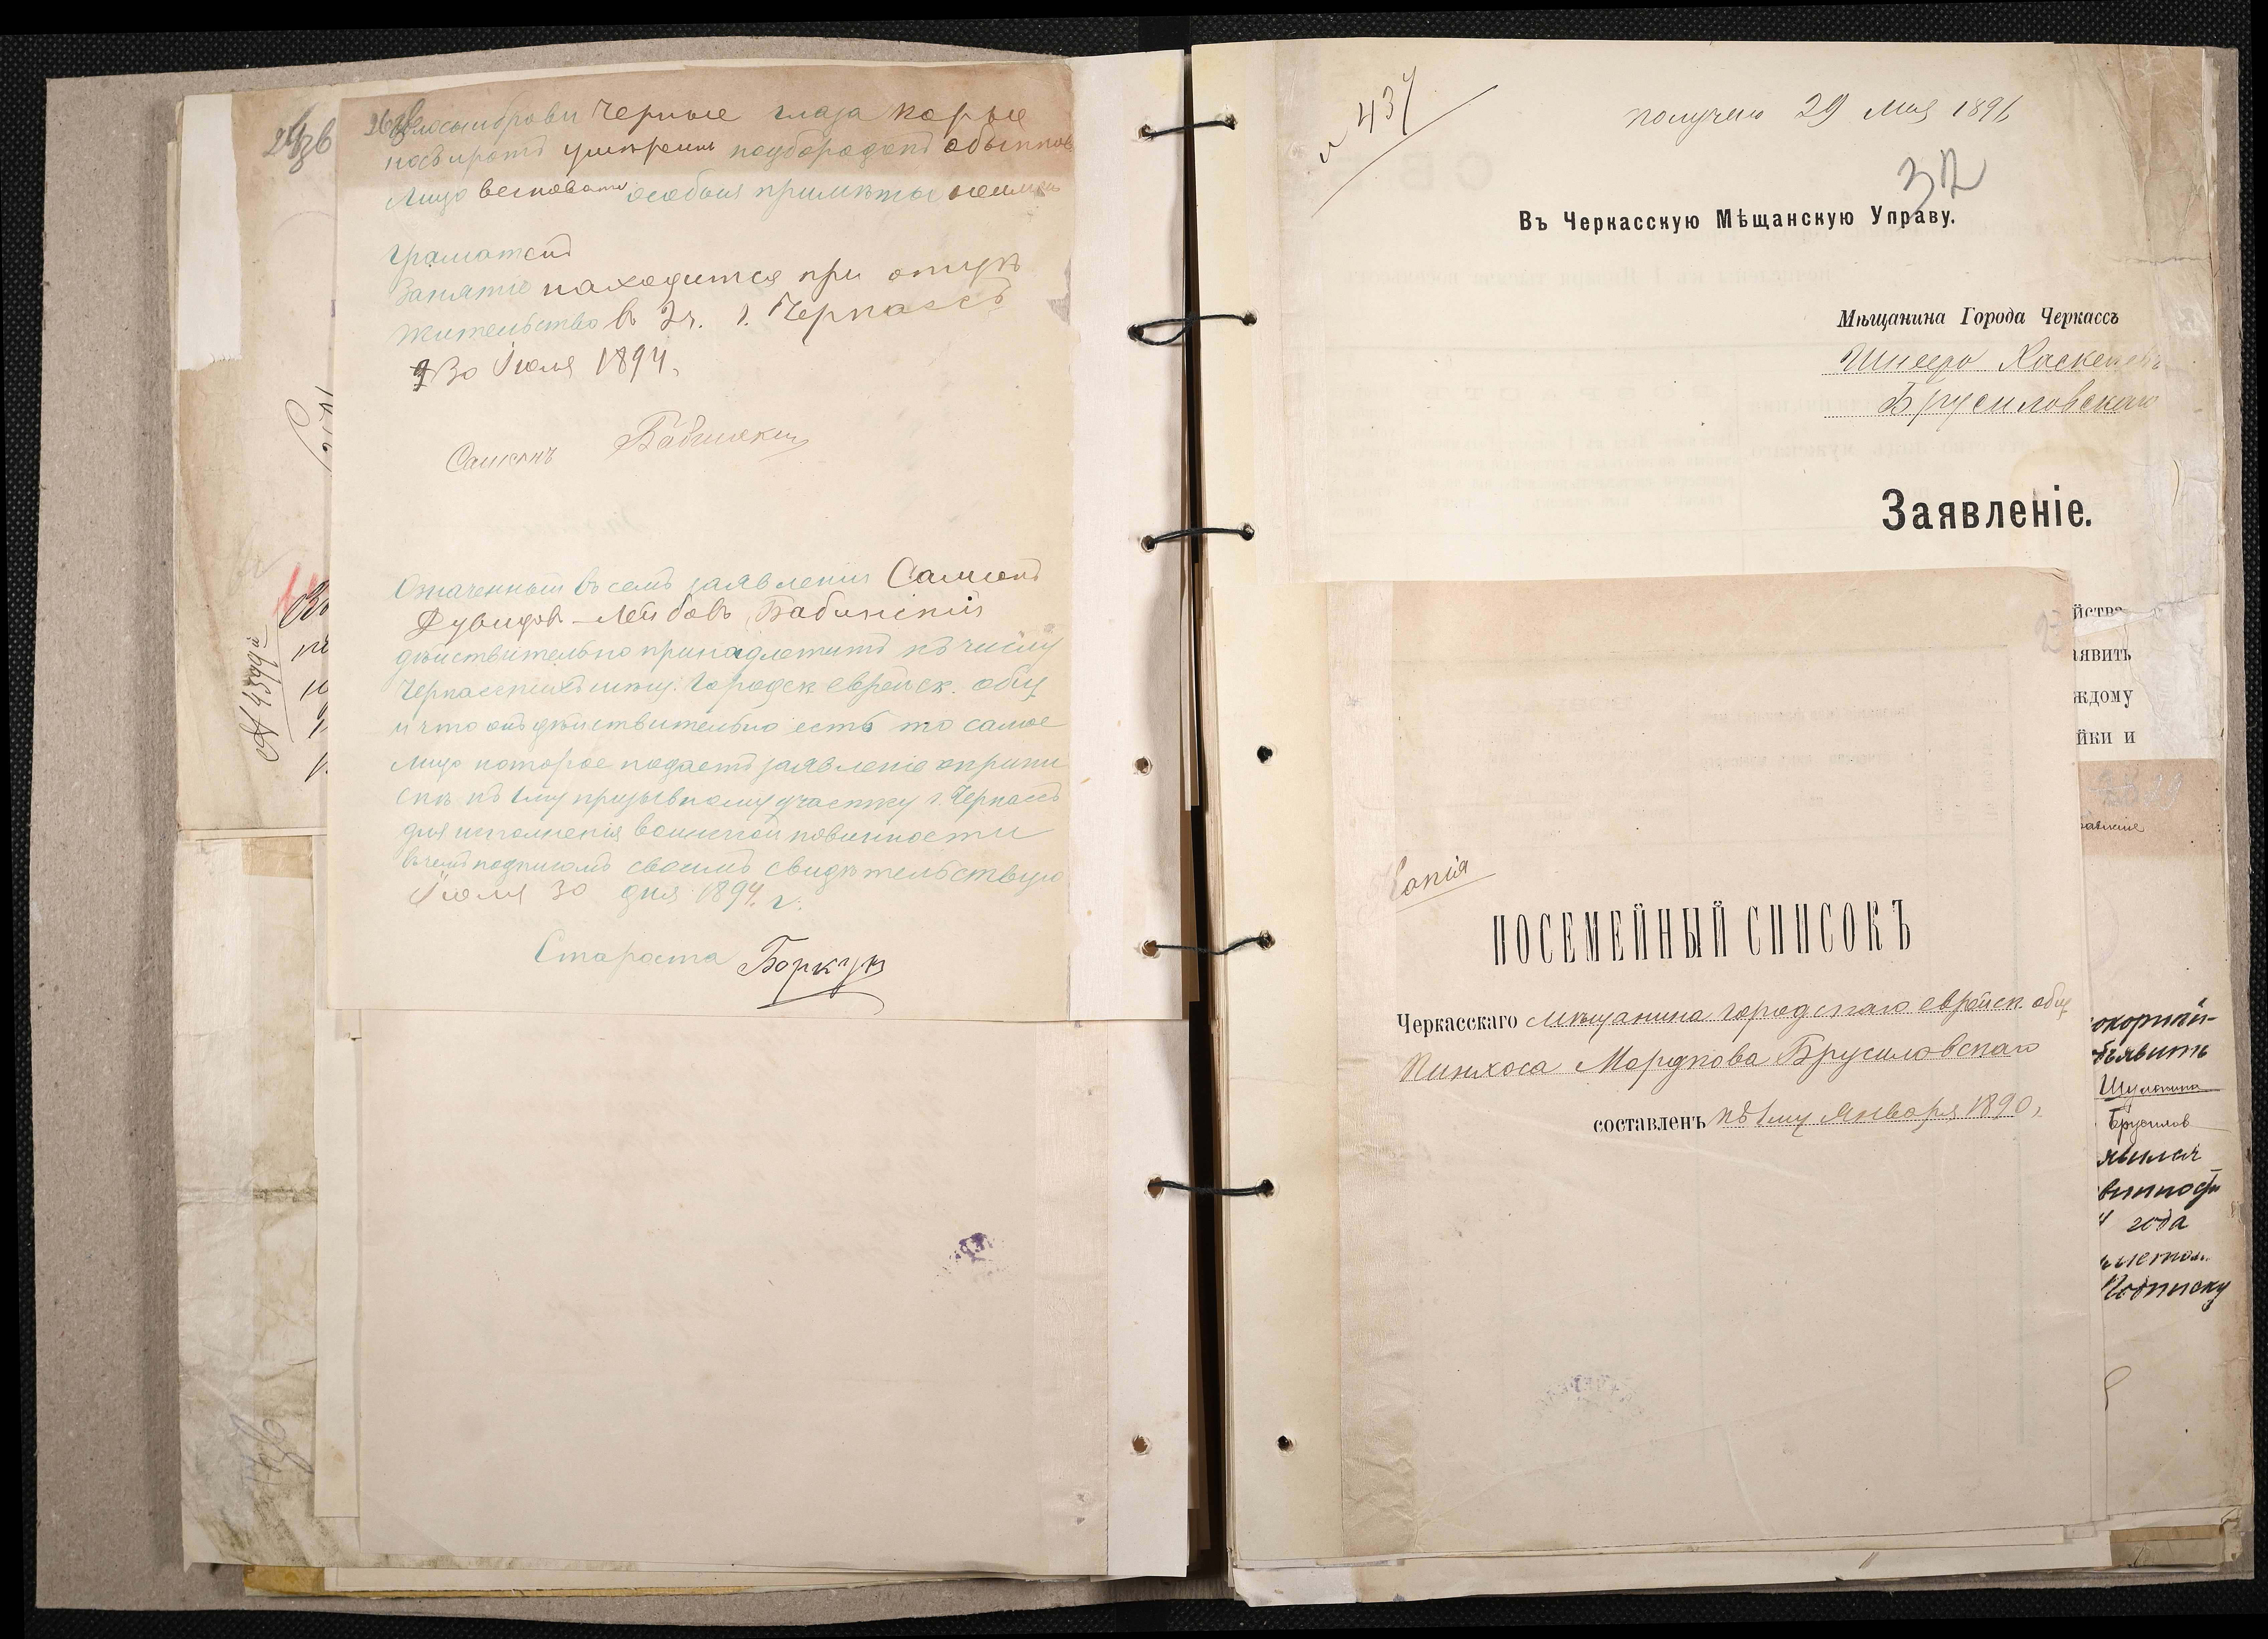 Волосы и брови черные глаза карые
носъ и ротъ умѣрены подбородокъ обыкнов
Лицо весноват особыя примѣты
Грамотенъ
Занятіе находится при отцѣ
Жительство въ 2 ч. г. Черкассъ
30 Іюля 1894,
Самсонъ Бабински
Означенный въ семъ заявленіи Самсонъ
Дувидов-Лейбовъ Бабинскій
дѣйствительно принадлежитъ къ числу
Черкасскихъ мѣщ. Городск еврейск. общ
и что онъ дѣйствительно есть то самое
лицо которое подаетъ заявленіе о припи
скѣ къ 1му призывному участку г. Черкассъ
для исполненія воинской повинности
въ чемъ подписомъ своимъ свидѣтельствую
Іюля 30 дня 1894 г.
Староста Боркун
№ 437
получено 29 Мая 1896
32
Въ Черкасскую Мѣщанскую Управу.
Мѣщанина Города Черкассъ
Шнеера Хаскелев
Брусиловскаго
Заявленіе.
йства
аявить
ждому
йки и
Копія
ПОСЕМЕЙНЫЙ СПИСОКЪ
Черкасскаго мѣщанина городскаго еврейск. общ
Пинхоса Мордкова Брусиловскаго
составленъ къ 1му Января 1890,
ѣявить
Брусилов
явился
винност
года
Подписку